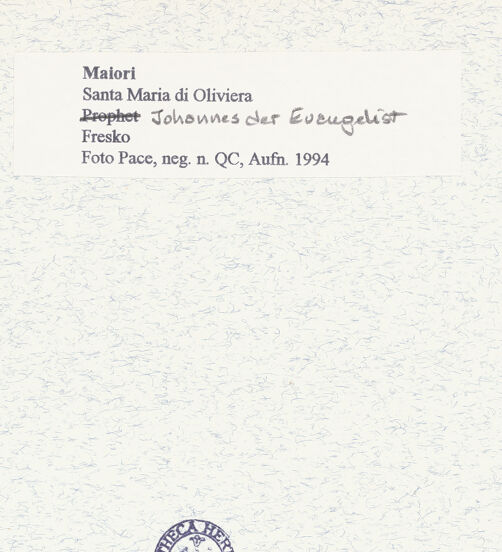 Maiori
Santa Maria di Oliviera
Prophet Johannes der Evangelist
Fresko
Foto Pace, neg. n. QC, Aufn. 1994
THECA HER